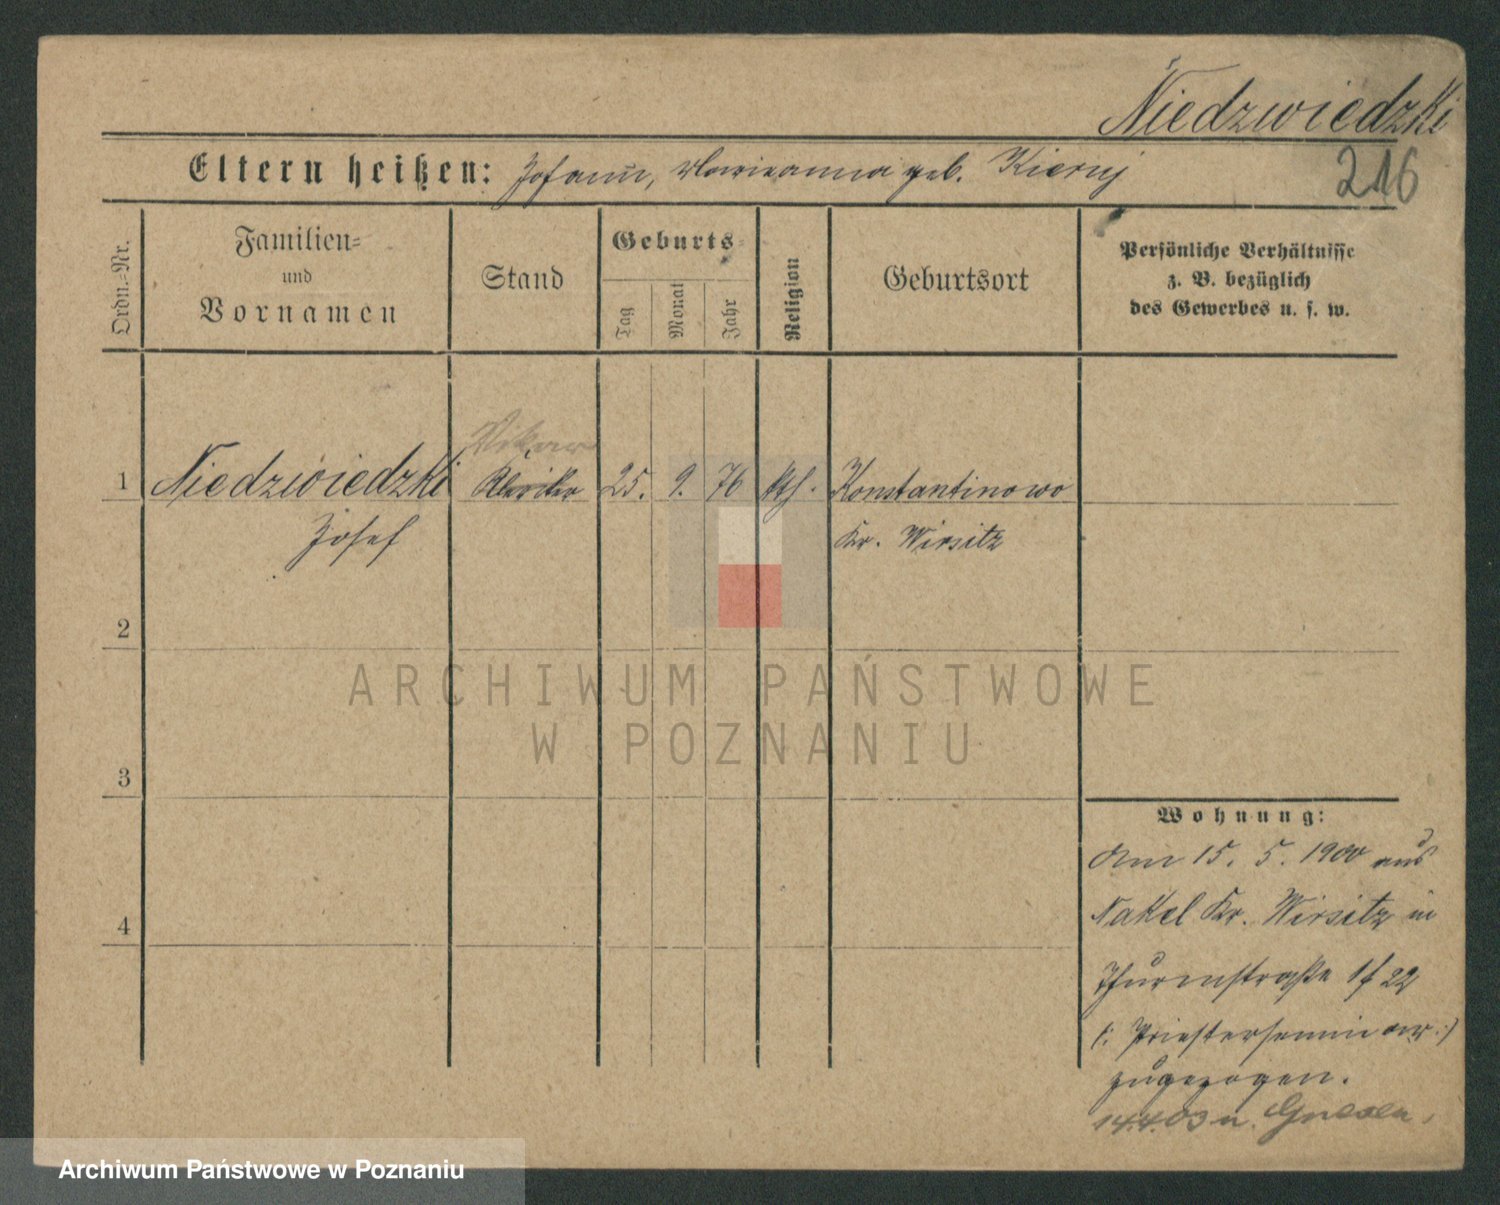 Niedzwiedzki
216
Eltern heißen: Johann, Marianna geb. Kieruj
Ordn.-Nr.
Familien-
und
Vornamen
Stand
Geburts-
Tag
Monat
Jahr
Religion
Geburtsort
Persönliche Verhältnisse
z. B. bezüglich
des Gewerbes u. s. w.
Vikar
1 Niedzwiedzki Kleriker 25. 9. 76 kth. Konstantinowo
Josef
Kr. Wirsitz
2
3
4
Wohnung:
Am 15. 5. 1900 aus
Nakel Kr. Wirsitz in
Thurmstraße 1f 22
(: Priesterseminar :)
zugezogen.
14.4.03 n. Gnesen.
ARCHIWUM PAŃSTWOWE
W POZNANIU
Archiwum Państwowe w Poznaniu